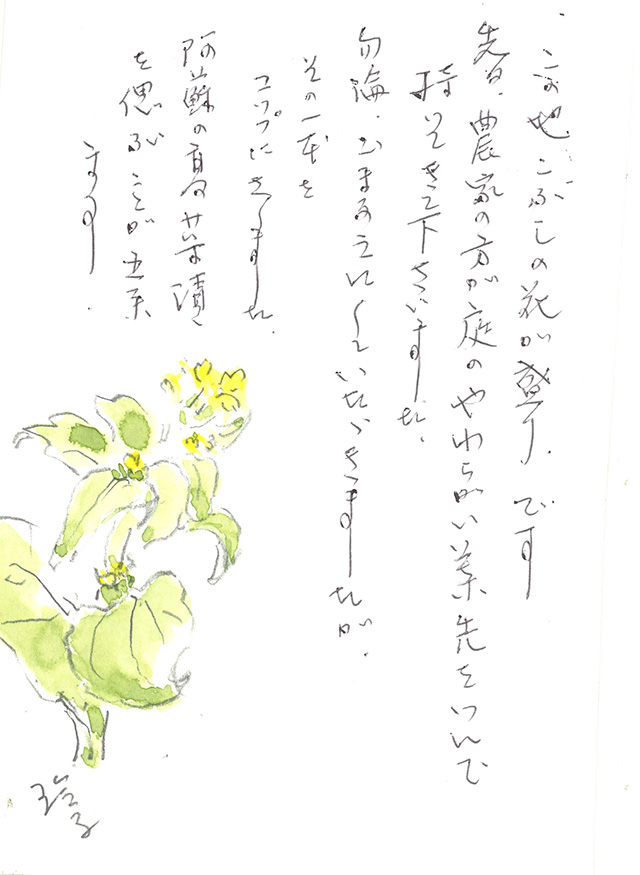 この地、こぶしの花が盛り、です
先日、農家の方が庭のやわらかい葉先をつんで
持ってきて下さいました。
勿論、ごまあえにしていたゞきましたが、
その一本を
コップにさしました。
阿蘇の高菜漬
を偲ぶことが出来
ます。
玲子